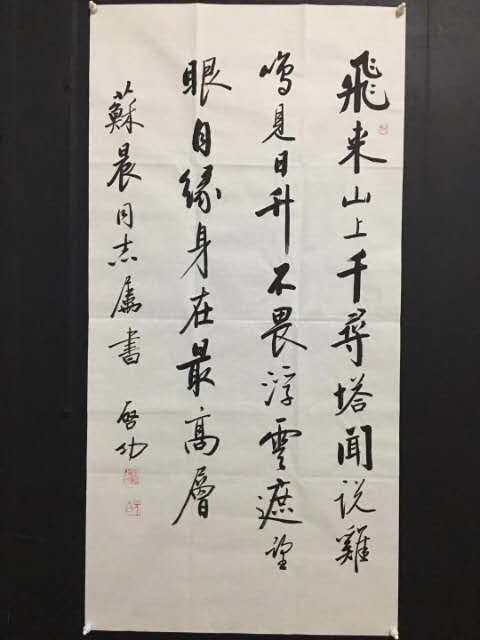 飛来山上千尋塔聞説雞
鳴見日升不畏浮雲遮望
眼自緣身在最高層
蘇晨同志屬書 啓功